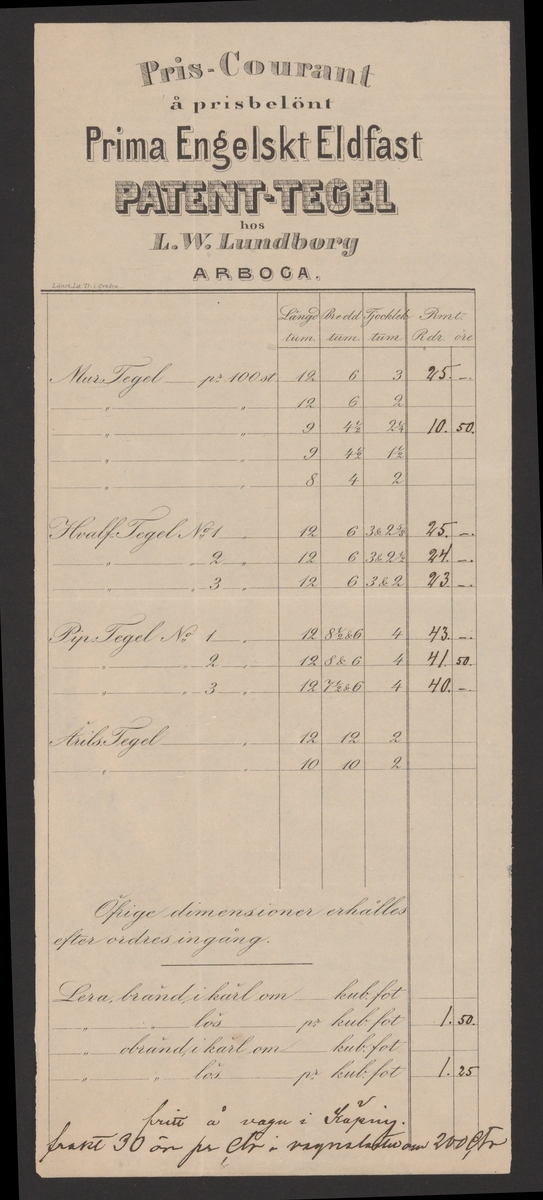 Pris-Courant
å prisbelönt
Prima Engelskt Eldfast
PATENT-TEGEL
hos
L. W. Lundborg
ARBOGA.
Längd Bredd Tjocklek Rmt:
tum. tum. tum. Rdr. öre
Mur-Tegel pr 100 st 12 6 3 25. -.
" " 12 6 2
" " 9 4½ 2¼ 10. 50.
" " 9 4½ 1½
" " 8 4 2
Hvalf-Tegel No 1 " 12 6 3 & 2⅝ 25. -.
" " 2 " 12 6 3 & 2½ 24. -.
" " 3 " 12 6 3 & 2 23. -.
Pip-Tegel No 1 " 12 8½ & 6 4 43. -.
" " 2 " 12 8 & 6 4 41. 50.
" " 3 " 12 7½ & 6 4 40. -.
Ärils-Tegel " 12 12 2
" " 10 10 2
Öfrige dimensioner erhålles
efter ordres ingång.
Lera, bränd, i kärl om kub. fot
" " lös pr kub. fot 1. 50.
" obränd, i kärl om kub. fot
" " lös pr kub. fot 1. 25
fritt å vagn i Köping.
frakt 30 öre pr Ctr i vagnslaster om 200 Ctr